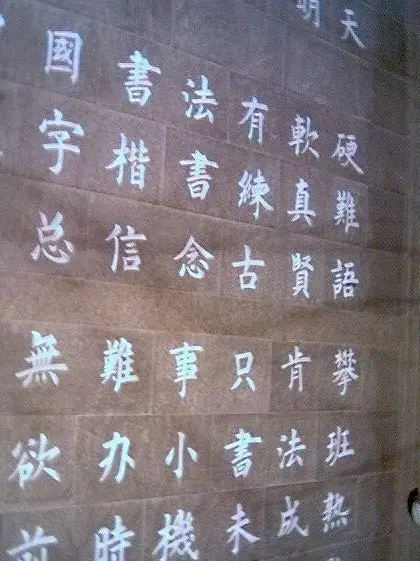 明天
國書法有軟硬
字楷書練真難
总信念古賢語
無難事只肯攀
欲办小書法班
前時機未成热